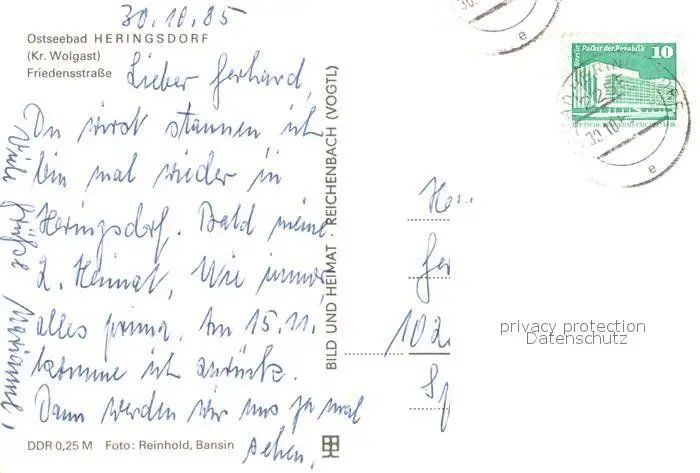 30.10.85
Ostseebad HERINGSDORF
(Kr. Wolgast)
Friedensstraße
Lieber Gerhard,
Du wirst staunen ich
bin mal wieder in
Heringsdorf. Bald meine
2. Heimat. Wie immer
alles prima. Am 15.11.
komme ich zurück.
Dann werden wir uns ja mal
sehen.
Viele Grüße Marianne,
DDR 0,25 M Foto: Reinhold, Bansin
BILD UND HEIMAT REICHENBACH (VOGTL)
Berlin Palast der Republik 10
30.10
e
e
He
Ger
102
Sp
privacy protection
Datenschutz